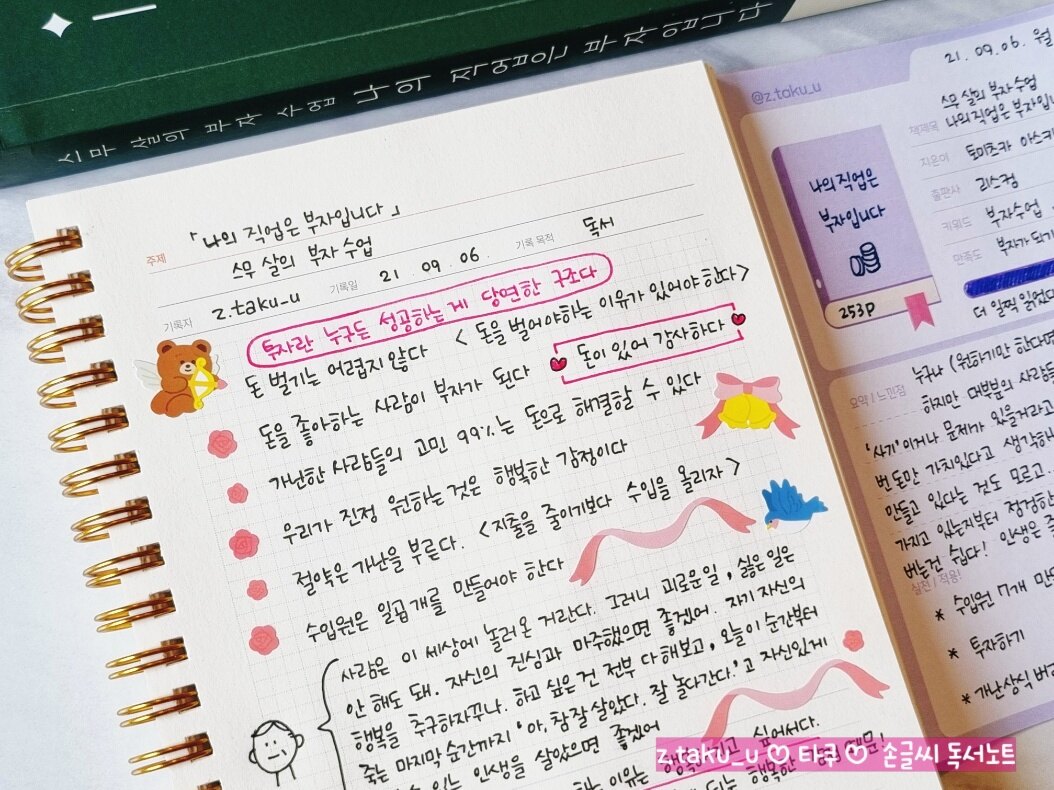 스무 살의 부자 수업 나의 직업은 부자입니다
주제
「나의 직업은 부자입니다」
스무 살의 부자 수업
기록자 z.taku_u 기록일 21. 09. 06. 기록 목적 독서
투자란 누구든 성공하는게 당연한 구조다
돈 벌기는 어렵지 않다 <돈을 벌어야하는 이유가 있어야한다>
돈을 좋아하는 사람이 부자가 된다 돈이 있어 감사하다
가난한 사람들의 고민 99%는 돈으로 해결할 수 있다
우리가 진정 원하는 것은 행복한 감정이다
절약은 가난을 부른다. <지출을 줄이기보다 수입을 올리자>
수입원은 일곱 개를 만들어야 한다
사람은 이 세상에 놀러온 거란다. 그러니 괴로운일, 싫은 일은
안 해도 돼. 자신의 진심과 마주했으면 좋겠어. 자기 자신의
행복을 추구하자꾸나. 하고 싶은건 전부 다 해보고, 오늘이 순간부터
죽는 마지막 순간까지 '아, 참 잘 살았다. 잘 놀다간다.'고 자신있게
있는 인생을 살았으면 좋겠어
이유는 행복 지고 싶어서다.
@z.taku_u
21. 09. 06. 월
책제목 스무 살의 부자 수업
나의 직업은 부자입니
지은이 토미츠카 아스카
출판사 리스컴
키워드 부자수업
만족도 부자가 되기
더 일찍 읽었다
나의 직업은
부자입니다
253p
요약 / 느낀점
누구나 (원하기만 한다면
하지만 대부분의 사람들
'사기'이거나 문제가 있을거라고
번 돈만 가치있다고 생각해
만들고 있다는 것도 모르고.
가지고 있는지부터 점검한
버는건 쉽다! 인생은 즐
실천 / 적용!
* 수입원 7개 만
* 투자하기
* 가난상식 버
z.taku_u ♡ 타쿠 ♡ 손글씨 독서노트